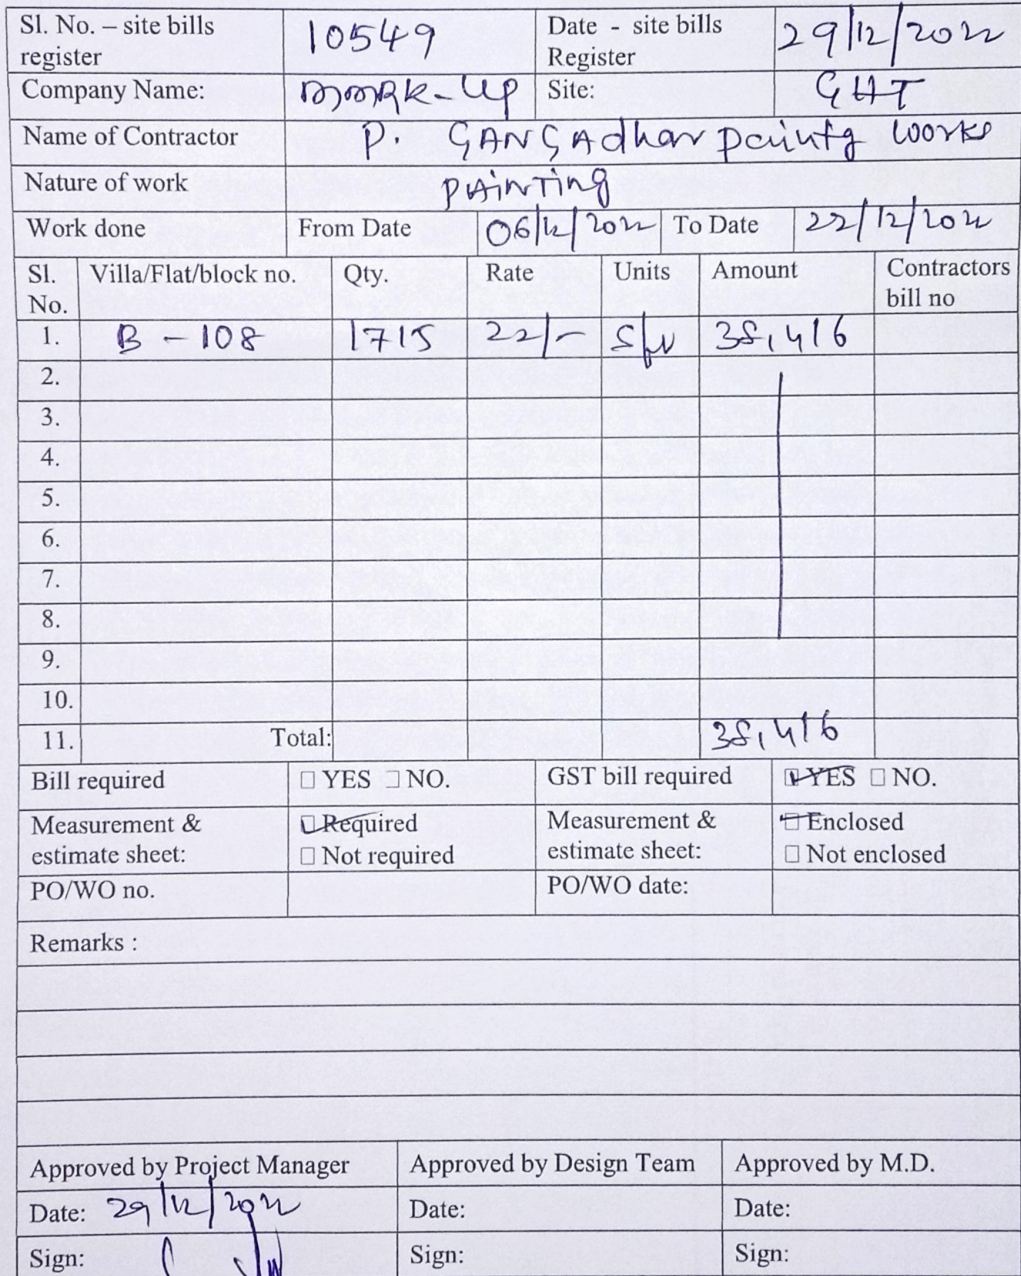 Sl. No. – site bills register 10549 Date - site bills Register 29/12/2022
Company Name: Site: GHT
Name of Contractor P. GANGAdhar painty works
Nature of work PAiNTing
Work done From Date 06/12/2022 To Date 22/12/2022
Sl. No. Villa/Flat/block no. Qty. Rate Units Amount Contractors bill no
1. B - 108 1715 22/- 38,416
2.
3.
4.
5.
6.
7.
8.
9.
10.
11. Total: 38,416
Bill required YES NO. GST bill required YES NO.
Measurement & estimate sheet: Required Not required Measurement & estimate sheet: Enclosed Not enclosed
PO/WO no. PO/WO date:
Remarks :
Approved by Project Manager Approved by Design Team Approved by M.D.
Date: 29/12/2022 Date: Date:
Sign: Sign: Sign: